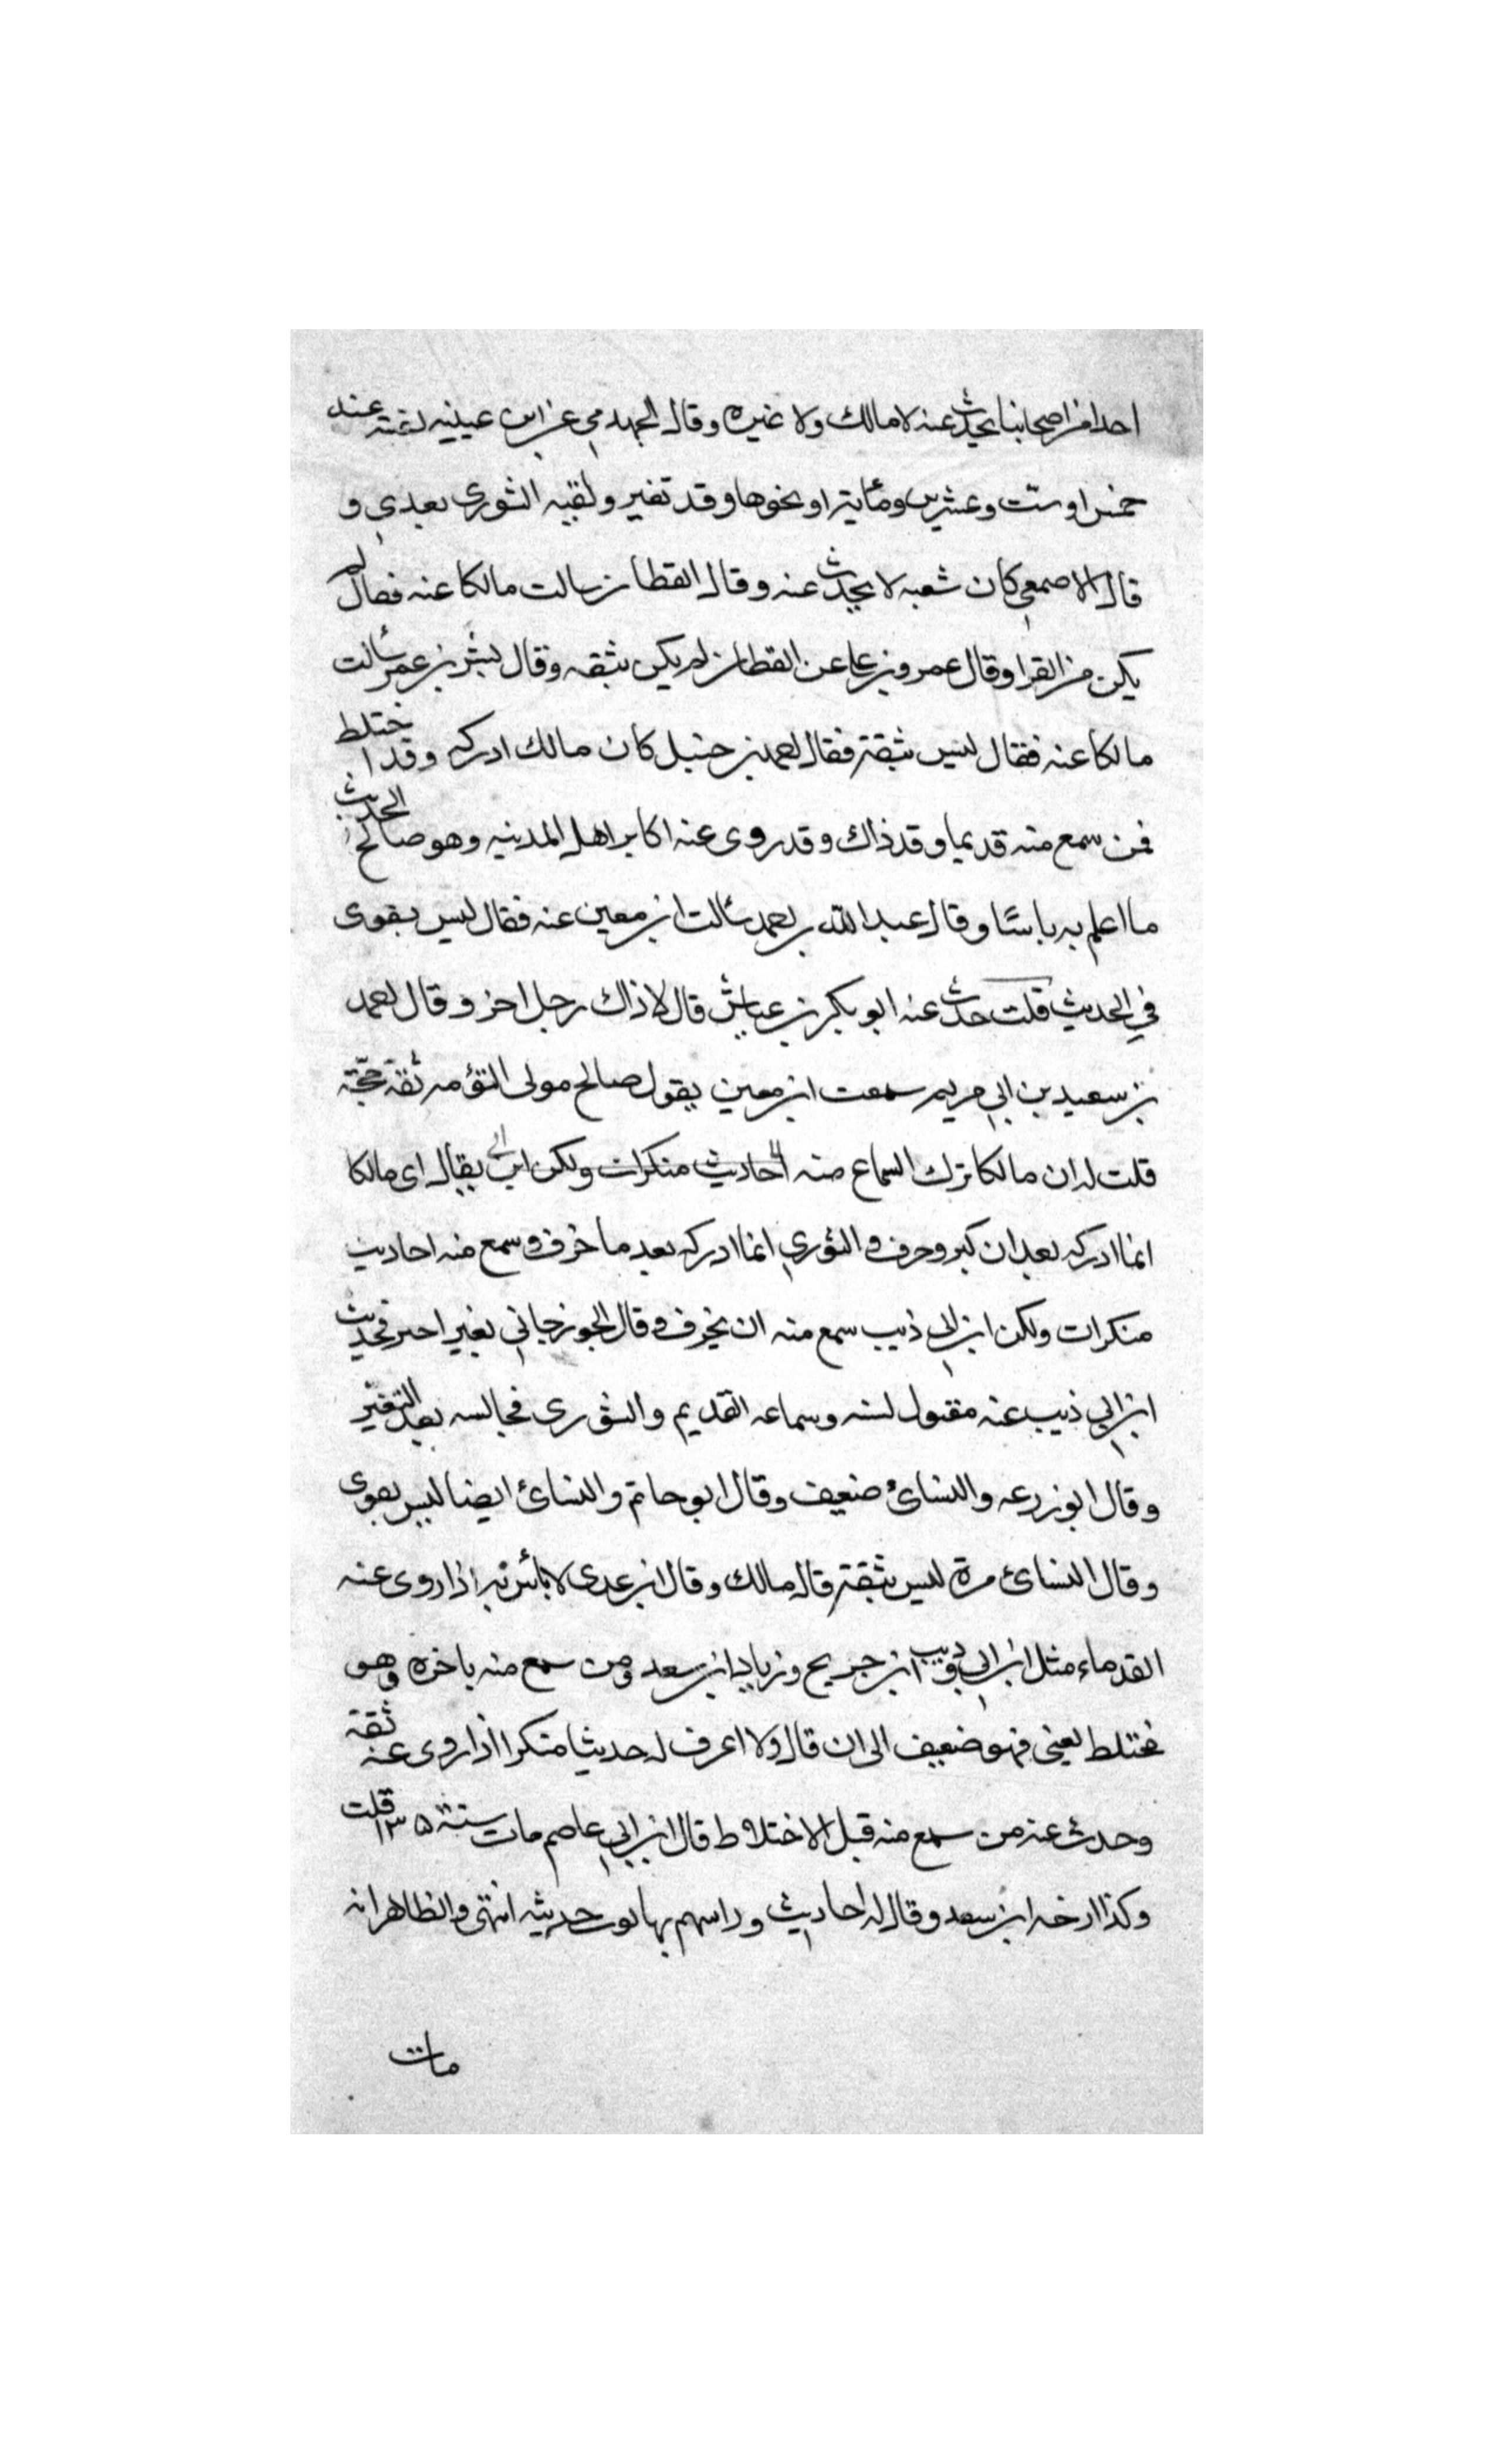 احدا من اصحابنا يحدث عنه لا مالك ولا غيره وقال الجهدمي عن ابن عيينه لقيته عند
خمس او ست وعشرين ومأية او نحوها وقد تغير ولقيه الثوري بعدي و
قال الاصمعي كان شعبه لا يحدث عنه وقال القطان سالت مالكا عنه فقال لم
يكن من القرا وقال عمرو بن علي عن القطان لم يكن بثقه وقال بشر بن عمر سألت
مالكا عنه فقال ليس بثقة فقال احمد بن حنبل كان مالك ادركه وقد اختلط
فمن سمع منه قديما وقد ذاك وقد روى عنه اكابر اهل المدنيه وهو صالح الحديث
ما اعلم به باسًا وقال عبد الله بن احمد سألت ابن معين عنه فقال ليس بقوى
في الحديث قلت حدث عنه ابو بكر بن عياش قال لا ذاك رجل اخر وقال احمد
بن سعيد بن ابي مريم سمعت ابن معين يقول صالح مولى التؤمه ثقة حجّة
قلت له ان مالكا ترك السماع منه احاديث منكرات ولكن ابن ابي يقال اى مالكا
انما ادركه بعد ان كبر وخرف والثوري انما ادركه بعد ما خرف وسمع منه احاديث
منكرات ولكن ابن ابي ذيب سمع منه ان يخرف وقال الجوزجاني تغير اخر فحديث
ابن ابي ذيب عنه مقبول لسنه وسماعه القديم والثورى فجالسه بعد التغيّر
وقال ابو زرعه والنسائ ضعيف وقال ابو حاتم والنسائ ايضا ليس بقوى
وقال النسائ مرة ليس بثقة قاله مالك وقال ابن عدى لا بأس به اذا روى عنه
القدماء مثل ابن ابي ذيب و ابن جريح وزياد ابن سعد ومن سمع منه باخره وهو
مختلط يعنى فهو ضعيف الى ان قال ولا اعرف له حديثا منكرا اذا روى عنه ثقة
وحدث عنه من سمع منه قبل الاختلاط قال ابن ابي عاصم مات سنة ١٣٥ قلت
وكذا ارخه ابن سعد وقال له احاديث وراسهم يهابون حديثه انتهى والظاهر انه
مات